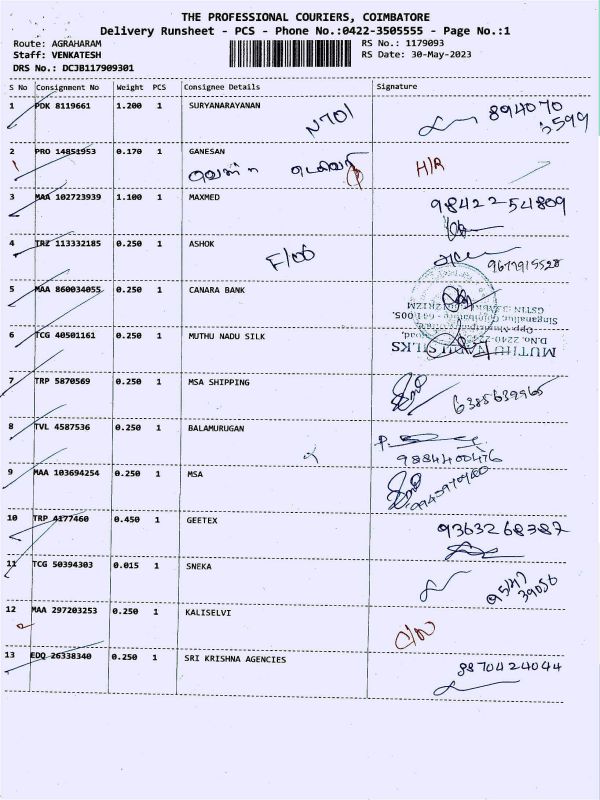 THE PROFESSIONAL COURIERS, COIMBATORE
Delivery Runsheet - PCS - Phone No.:0422-3505555 - Page No.:1
Route: AGRAHARAM RS No.: 1179093
Staff: VENKATESH RS Date: 30-May-2023
DRS No.: DCJB117909301
S No Consignment No Weight PCS Consignee Details Signature
1 PDK 8119661 1.200 1 SURYANARAYANAN
N701 894070
6599
2 PRO 14851953 0.170 1 GANESAN
H/R
3 MAA 102723939 1.100 1 MAXMED
98422 54809
4 TRZ 113332185 0.250 1 ASHOK
9677915528
5 MAA 860034055 0.250 1 CANARA BANK
6 TCG 40501161 0.250 1 MUTHU NADU SILK
MUTHU NADU SILKS
7 TRP 5870569 0.250 1 MSA SHIPPING
6385639965
8 TVL 4587536 0.250 1 BALAMURUGAN
9884400476
9 MAA 103694254 0.250 1 MSA
10 TRP 4177460 0.450 1 GEETEX
9363268387
11 TCG 50394303 0.015 1 SNEKA
39056
12 MAA 297203253 0.250 1 KALISELVI
13 EDQ 26338340 0.250 1 SRI KRISHNA AGENCIES
9870424044